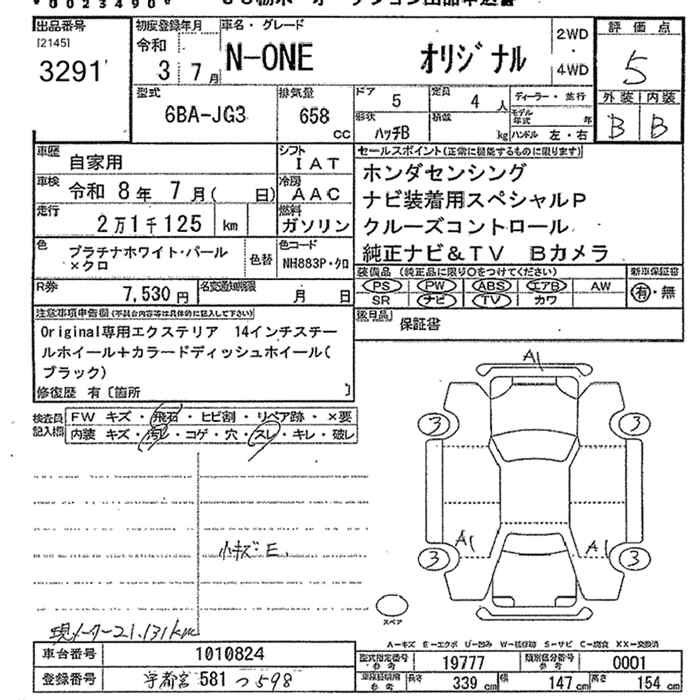 出品番号
[2145]
3291
初度登録年月
令和
3 7月
車名・グレード
N-ONE オリジナル
2WD
・
4WD
評価点
5
型式
6BA-JG3
排気量
658 cc
ドア
5
定員
4 人
ディーラー・並行
形状
ハッチB
積載
kg
モデル年式 年
ハンドル 左・右
外装 内装
B B
車歴
自家用
シフト
IAT
車検
令和 8年 7月( 日)
冷房
AAC
走行
2万1千125 km
燃料
ガソリン
色
プラチナホワイト・パール
×クロ
色替
色コード
NH883P・クロ
R券
7,530円
名変通知期限
月 日
セールスポイント(正常に機能するものに限ります)
ホンダセンシング
ナビ装着用スペシャルP
クルーズコントロール
純正ナビ&TV Bカメラ
装備品 (純正品に限り○をつけてください)
新車保証書
PS PW ABS エアB AW
SR ナビ TV カワ
有・無
後日品
保証書
注意事項申告欄(不具合内容等は具体的に記入して下さい)
Original専用エクステリア 14インチスチー
ルホイール+カラードディッシュホイール(
ブラック)
修復歴 有〔箇所 〕
検査員記入欄
FW キズ・飛石・ヒビ割・リペア跡・×要
内装 キズ・汚レ・コゲ・穴・スレ・キレ・破レ
小キズ・E.
現メーター21,131km
A1
3 3
A1 A1
3 3
スペア
A=キズ E=エクボ U=凹み W=補修跡 S=サビ C=腐食 XX=交換済
車台番号
1010824
登録番号
宇都宮 581 つ 598
型式指定番号
参考
19777
類別区分番号
参考
0001
車検証記載
参考
長さ 339 cm
幅 147 cm
高さ 154 cm